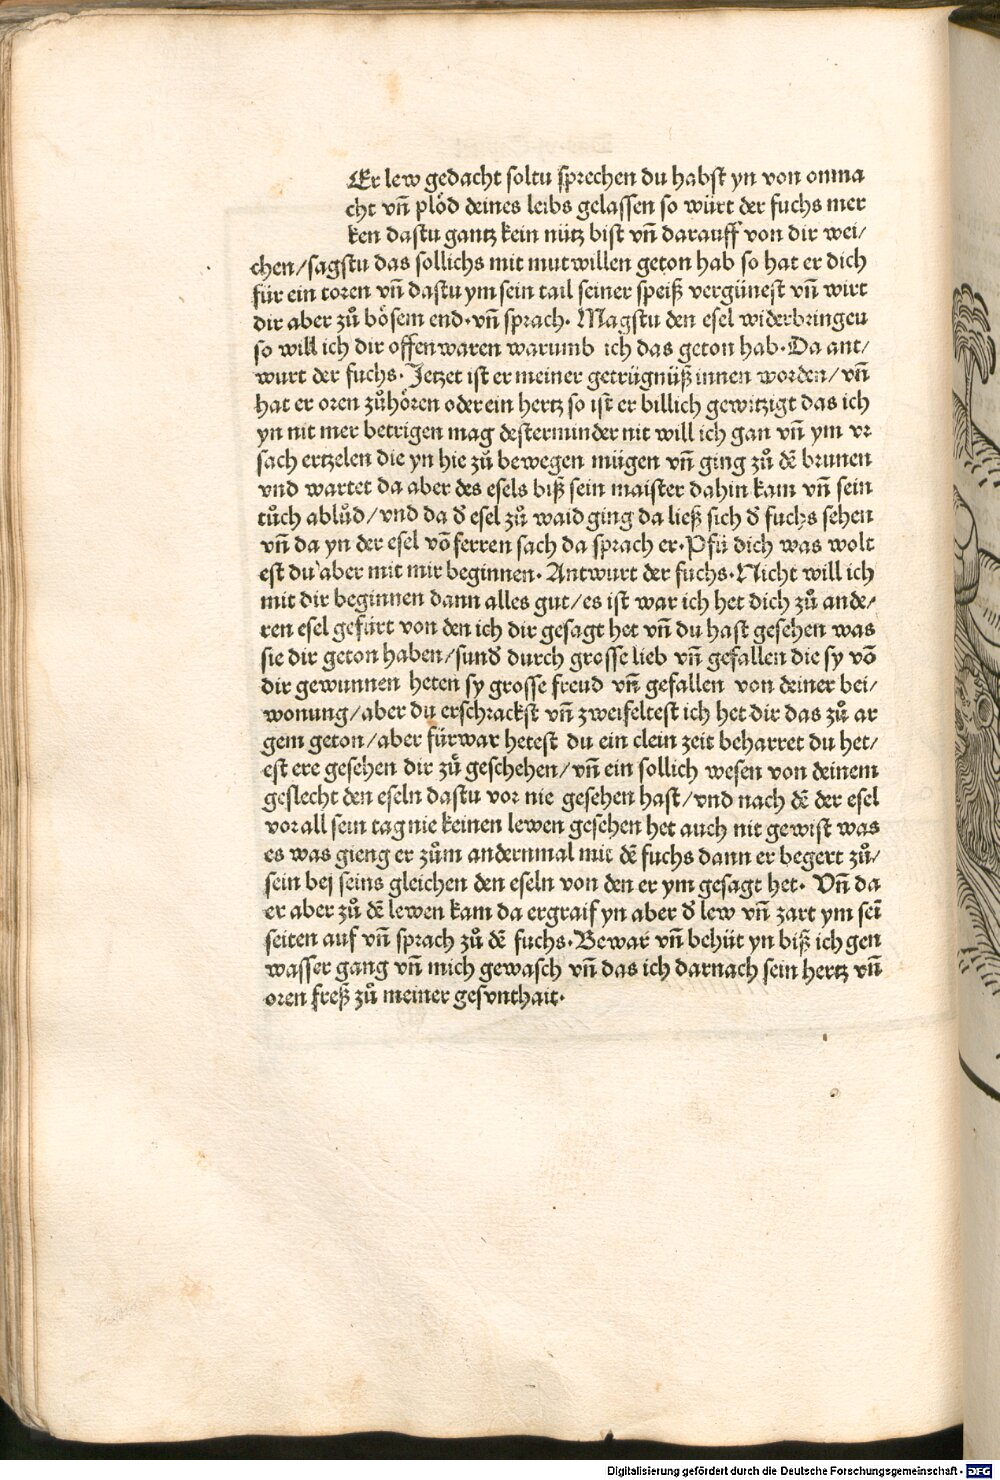 Er lew gedacht soltu sprechen du habst yn von onma
cht vn̄ plöd deines leibs gelassen so würt der fuchs mer
ken dastu gantz kein nütz bist vn̄ darauff von dir wei/
chen/sagstu das sollichs mit mutwillen geton hab so hat er dich
für ein toren vn̄ dastu ym sein tail seiner speiß vergünest vn̄ wirt
dir aber zuͦ bösem end·vn̄ sprach· Magstu den esel widerbringen
so will ich dir offenwaren warumb ich das geton hab·Da ant/
wurt der fuchs·Jetzet ist er meiner getrügnüß innen worden/vn̄
hat er oren zuͦhören oder ein hertz so ist er billich gewitzigt das ich
yn nit mer betrigen mag desterminder nit will ich gan vn̄ ym vr
sach ertzelen die yn hie zuͦ bewegen mügen vn̄ ging zuͦ dē brunen
vnd wartet da aber des esels biß sein maister dahin kam vn̄ sein
tuͦch abluͦd/vnd da d̄ esel zuͦ waid ging da ließ sich d̄ fuchs sehen
vn̄ da yn der esel vō ferren sach da sprach er·Pfü dich was wolt
est du aber mit mir beginnen· Antwurt der fuchs·Nicht will ich
mit dir beginnen dann alles gut/es ist war ich het dich zuͦ ande/
ren esel gefürt von den ich dir gesagt het vn̄ du hast gesehen was
sie dir geton haben/sund̄ durch grosse lieb vn̄ gefallen die sy vō
dir gewunnen heten sy grosse freud vn̄ gefallen von deiner bei/
wonung/aber du erschrackst vn̄ zweifeltest ich het dir das zuͦ ar
gem geton/aber fürwar hetest du ein clein zeit beharret du het/
est ere gesehen dir zuͦ geschehen/vn̄ ein sollich wesen von deinem
geslecht den eseln dastu vor nie gesehen hast/vnd nach dē der esel
vor all sein tag nie keinen lewen gesehen het auch nit gewist was
es was gieng er zuͦm andernmal mit dē fuchs dann er begert zuͦ/
sein bej seins gleichen den eseln von den er ym gesagt het· Vn̄ da
er aber zuͦ dē lewen kam da ergraif yn aber d̄ lew vn̄ zart ym seī
seiten auf vn̄ sprach zuͦ dē fuchs·Bewar vn̄ behüt yn biß ich gen
wasser gang vn̄ mich gewasch vn̄ das ich darnach sein hertz vn̄
oren freß zuͦ meiner gesunthait·
Digitalisierung gefördert durch die Deutsche Forschungsgemeinschaft - DFG